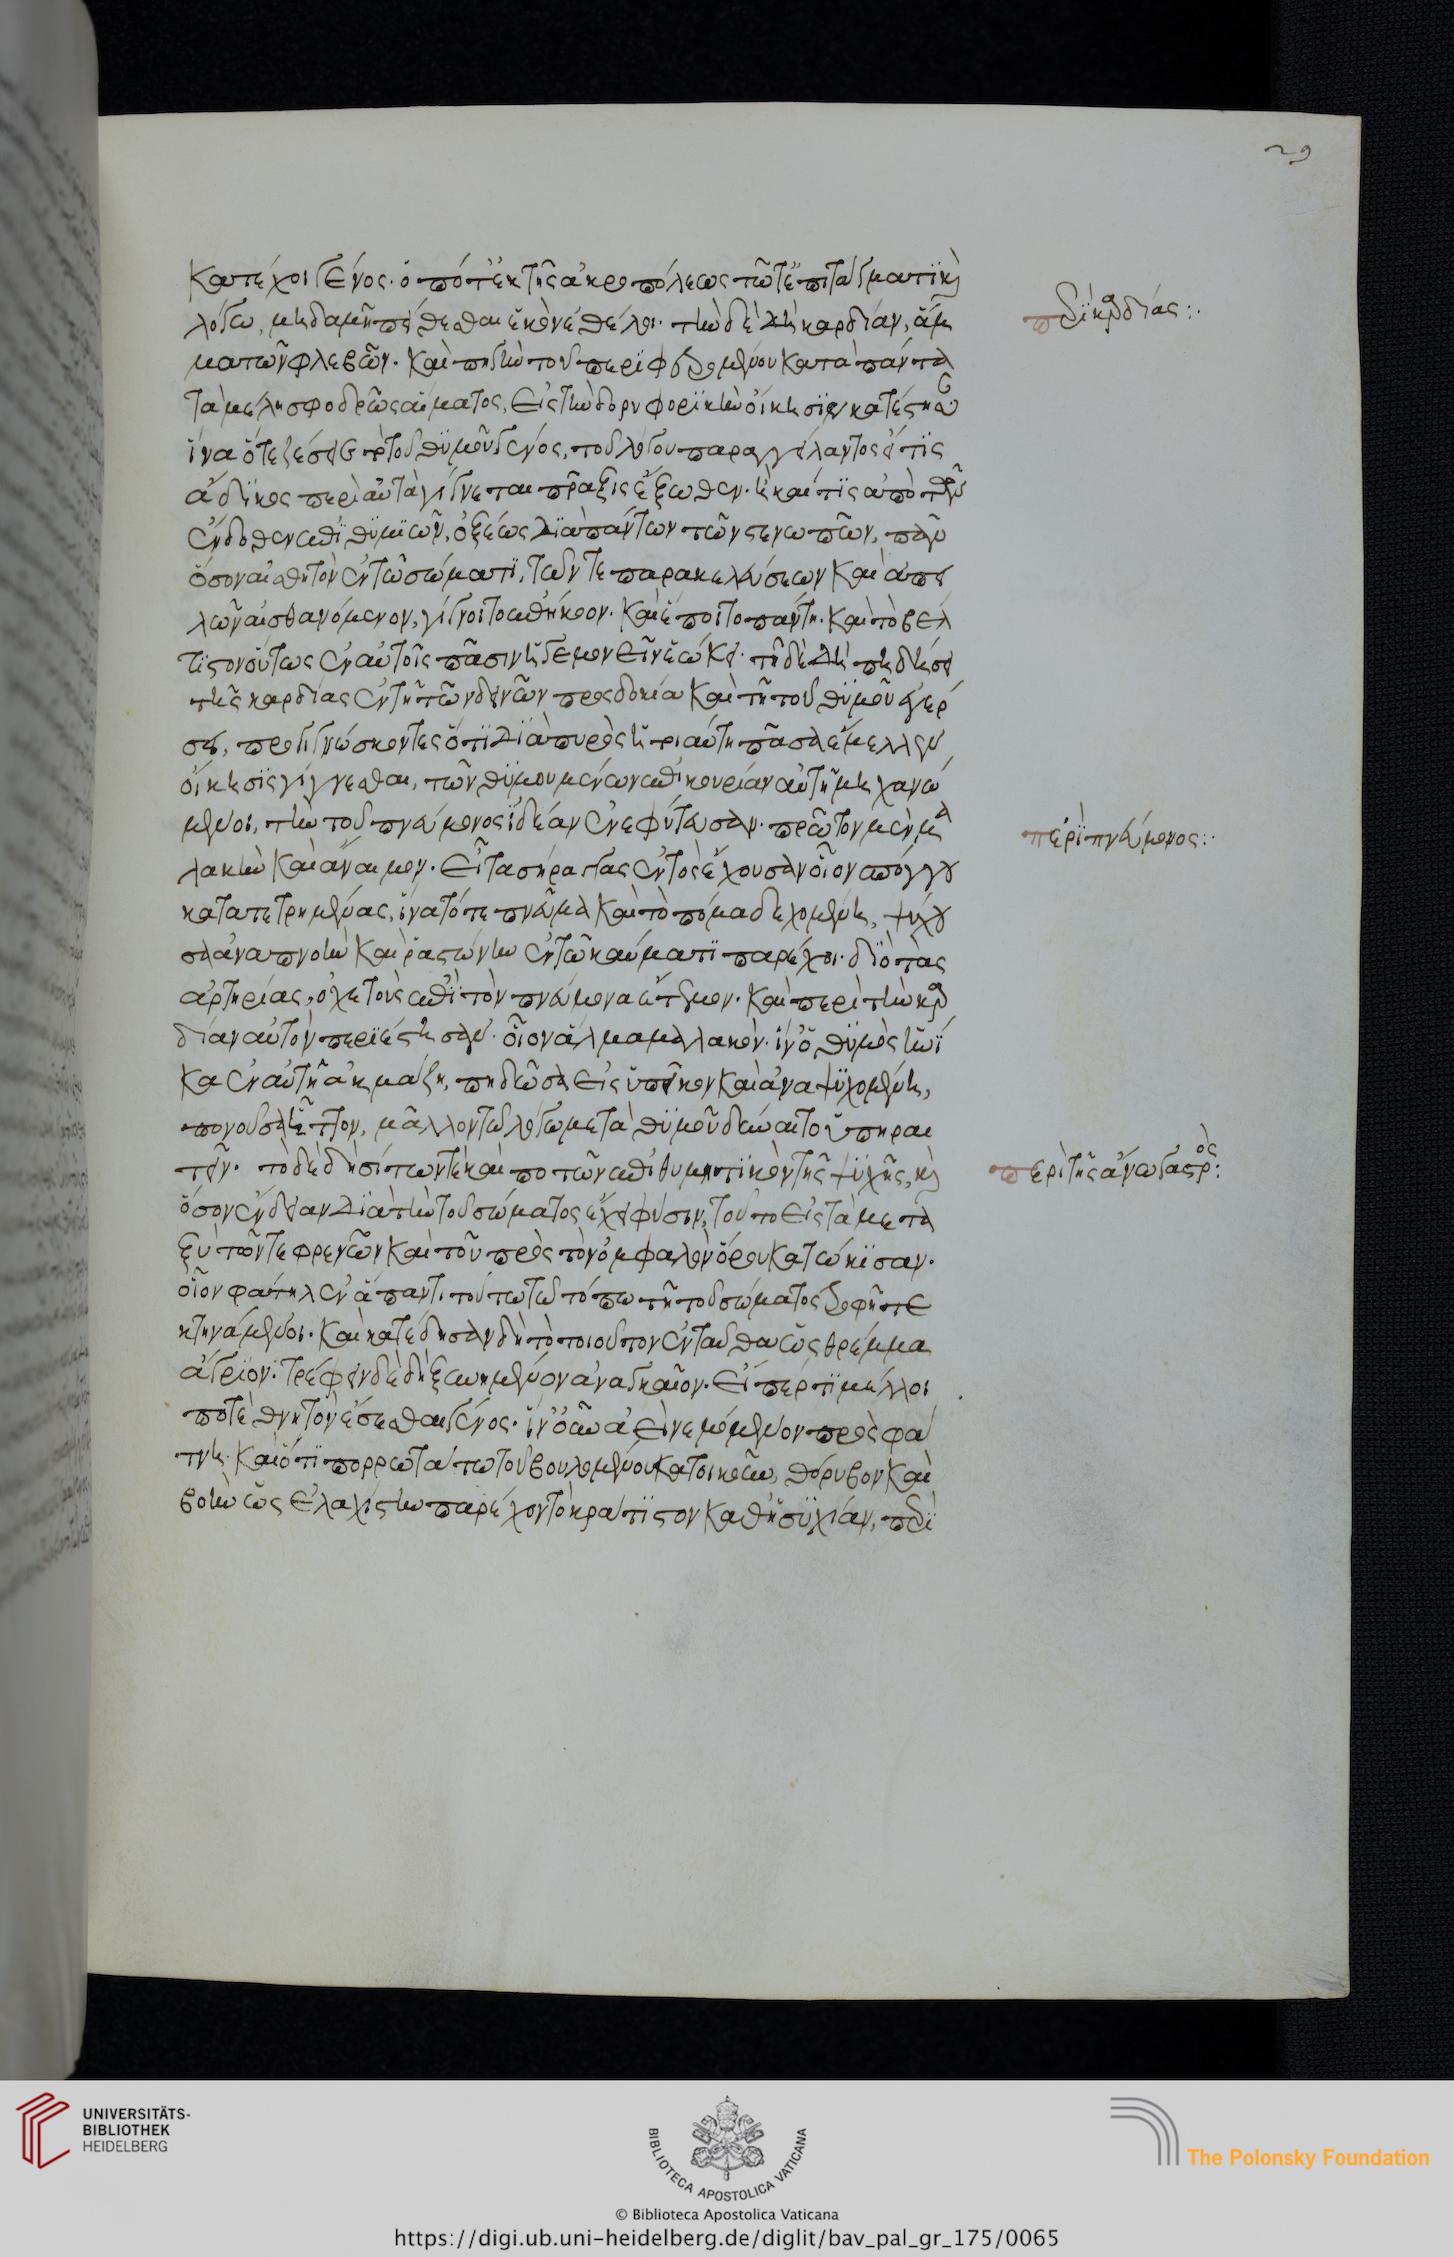 κατέχοι γένος. ὁπότ' ἐκ τῆς ἀκροπόλεως τῷ τ' ἐπιτάγματι καὶ
λόγω, μηδαμῆ πείθεσθαι ἑκὸν ἐθέλοι. τὴν δὲ δὴ καρδίαν, ἅμ
μα τῶν φλεβῶν. καὶ πηγὴν τοῦ περιφερομένου κατὰ πάντα
τὰ μέλη σφοδρῶς αἵματος, εἰς τὴν δορυφορικὴν οἴκησιν κατέστησαν
ἵνα ὅτε ζέσειε τὸ τοῦ θυμοῦ γένος, τοῦ λόγου παραγγείλαντος ὥς τις
ἄδικος περὶ αὐτὰ γίγνεται πρᾶξις ἔξωθεν. ἢ καί τις ἀπὸ τῶν
ἔνδοθεν ἐπιθυμιῶν, ὀξέως διὰ πάντων τῶν στενωπῶν, πᾶν
ὅσον αἰσθητὸν ἐν τῶ σώματι, τῶν τε παρακελεύσεων καὶ ἀπει
λῶν αἰσθανόμενον, γίγνοιτο ἐπήκοον. καὶ ἕποιτο πάντη. καὶ τὸ βέλ
τιστον οὕτως ἐν αὐτοῖς πᾶσιν ἡγεμονεῖν τῆ δὲ δὴ πηδήσει
τῆς καρδίας ἐν τῆ τῶν δεινῶν προσδοκία καὶ τῆ τοῦ θυμοῦ ἐγέρ
σει, προγιγνώσκοντες ὅτι διὰ πυρὸς ἡ τοιαύτη πᾶσα ἔμελλεν
οἴκησις γίγνεσθαι, τῶν θυμουμένων ἐπικουρίαν αὐτῆ μηχανώ
μενοι, τὴν τοῦ πνεύμονος ἰδέαν ἐνεφύτευσαν. πρῶτον μὲν μα
λακὴν καὶ ἄναιμον. εἶτα σήραγγας ἐντὸς ἔχουσαν οἷον σπόγγου
κατατετρημένας, ἵνα τό τε πνεῦμα καὶ τὸ πόμα δεχομένη, ψύχου
σα ἀναπνοὴν καὶ ῥαστώνην ἐν τῶ καύματι παρέχοι. διὸ τὰς
ἀρτηρίας, ὀχετοὺς ἐπὶ τὸν πνεύμονα ἔτεμον. καὶ περὶ τὴν καρ
δίαν αὐτὸν περιέστησαν. οἷον ἅλμα μαλακόν. ἵν' ὁ θυμὸς ἡνί
κα ἐν αὐτῆ ἀκμάζη, πηδῶσα εἰς ὑπεῖκον καὶ ἀναψυχομένη,
πονοῦσα ἧττον, μᾶλλον τῶ λόγω μετὰ θυμοῦ δύναιτο ὑπηρε
τεῖν. τὸ δὲ δὴ σίτων τε καὶ ποτῶν ἐπιθυμητικὸν τῆς ψυχῆς, καὶ
ὅσον ἔνδειαν διὰ τὴν τοῦ σώματος ἔχει φύσιν, τοῦτο εἰς τὰ μετα
ξὺ τῶν τε φρενῶν καὶ τοῦ πρὸς τὸν ὀμφαλὸν ὅρου κατώκισαν.
οἷον φάτνην ἐν ἅπαντι τούτω τῶ τόπω τῆ τοῦ σώματος τροφῆ τε
κτηνάμενοι. καὶ κατέδησαν δὴ τὸ τοιοῦτον ἐνταῦθα ὡς θρέμμα
ἄγριον. τρέφειν δὲ δὴ ξυνημμένον ἀναγκαῖον. εἴπερ τι μέλλοι
ποτὲ θνητὸν ἔσεσθαι γένος. ἵν' οὖν ἀεὶ νεμόμενον πρὸς φά
τνη. καὶ ὅτι πορρωτάτω τοῦ βουλομένου κατοικοῦν, θόρυβον καὶ
βοὴν ὡς ἐλαχίστην παρέχον τὸ κράτιστον καθ' ἡσυχίαν, περὶ
29
περὶ καρδίας:
περὶ πνεύμονος:
περὶ τῆς ἄνω γαστρός:
UNIVERSITÄTS-
BIBLIOTHEK
HEIDELBERG
BIBLIOTECA APOSTOLICA VATICANA
The Polonsky Foundation
© Biblioteca Apostolica Vaticana
https://digi.ub.uni-heidelberg.de/diglit/bav_pal_gr_175/0065